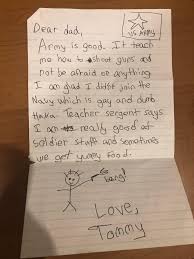 Dear dad,
US ARMY
Army is good. It teach
me how to shoot guns and
not be afraid or anything
I am glad I didnt join the
Navy which is gay and dumb
Haha. Teacher sergent says
I am really good at
soldier stuff and sometimes
we get yummy food.
bang!
Love,
Tommy